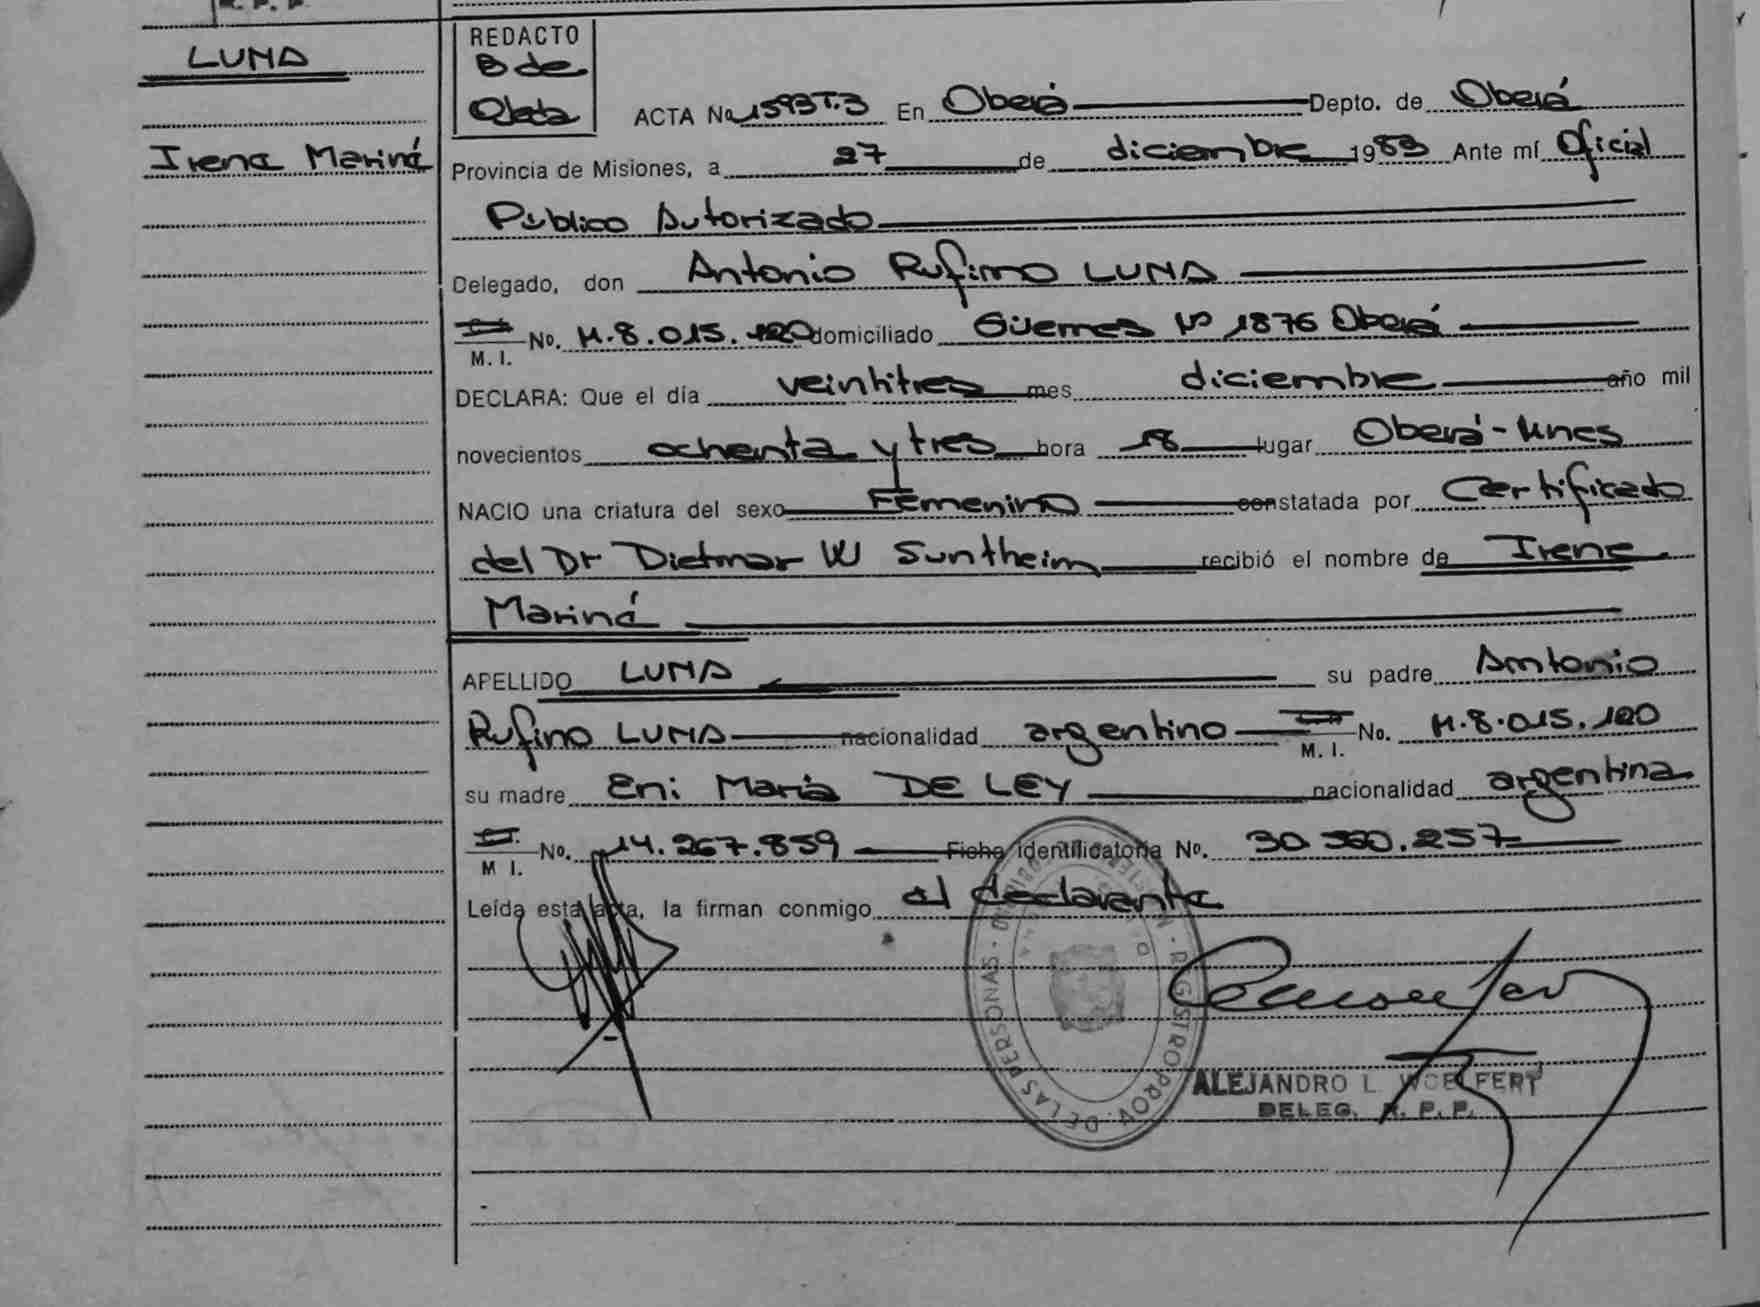 R. P. P.
LUNA
Irene Mariná
REDACTO
B de
ACTA No 1593 T.3 En Oberá Depto. de Oberá
Provincia de Misiones, a 27 de diciembre 1983 Ante mí Oficial
Publico Autorizado
Delegado, don Antonio Rufino LUNA
M. I. No. M.8.015.120 domiciliado Güemes Nº 1876 Oberá
DECLARA: Que el día veintitres mes diciembre año mil
novecientos ochenta y tres hora 18 lugar Oberá-
NACIO una criatura del sexo Femenino constatada por Certificado
del Dr Dietmar W Suntheim recibió el nombre de Irene
Mariná
APELLIDO LUNA su padre Antonio
Rufino LUNA nacionalidad argentino M. I. No. M.8.015.120
su madre Eni María DE LEY nacionalidad argentina
M I. No. 14.267.859 Ficha identificatoria No. 30.560.257
Leída esta acta, la firman conmigo el declarante
REGISTRO PROV. DE LAS PERSONAS
ALEJANDRO L. WOELFERT
DELEG. R. P. P.